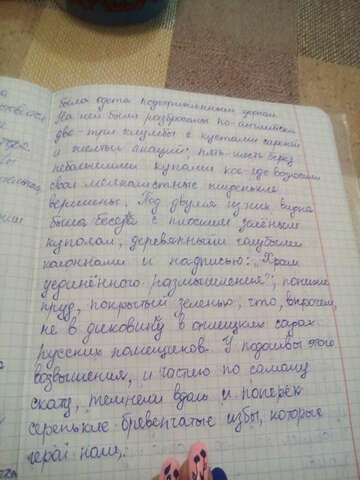 была одета подстриженным дерном.
На ней были разбросаны по-английски
две-три клумбы с кустами сиреней
и желтых акаций; пять-шесть берез
небольшими купами кое-где возносили
свои мелколистные жиденькие
вершины. Под двумя из них видна
была беседка с плоским зелёным
куполом, деревянными голубыми
колоннами и надписью: „Храм
уединённого размышления"; пониже
пруд, покрытый зеленью, что, впрочем,
не в диковинку в аглицких садах
русских помещиков. У подошвы этого
возвышения, и частию по самому
скату, темнели вдоль и поперек
серенькие бревенчатые избы, которые
герой наш,